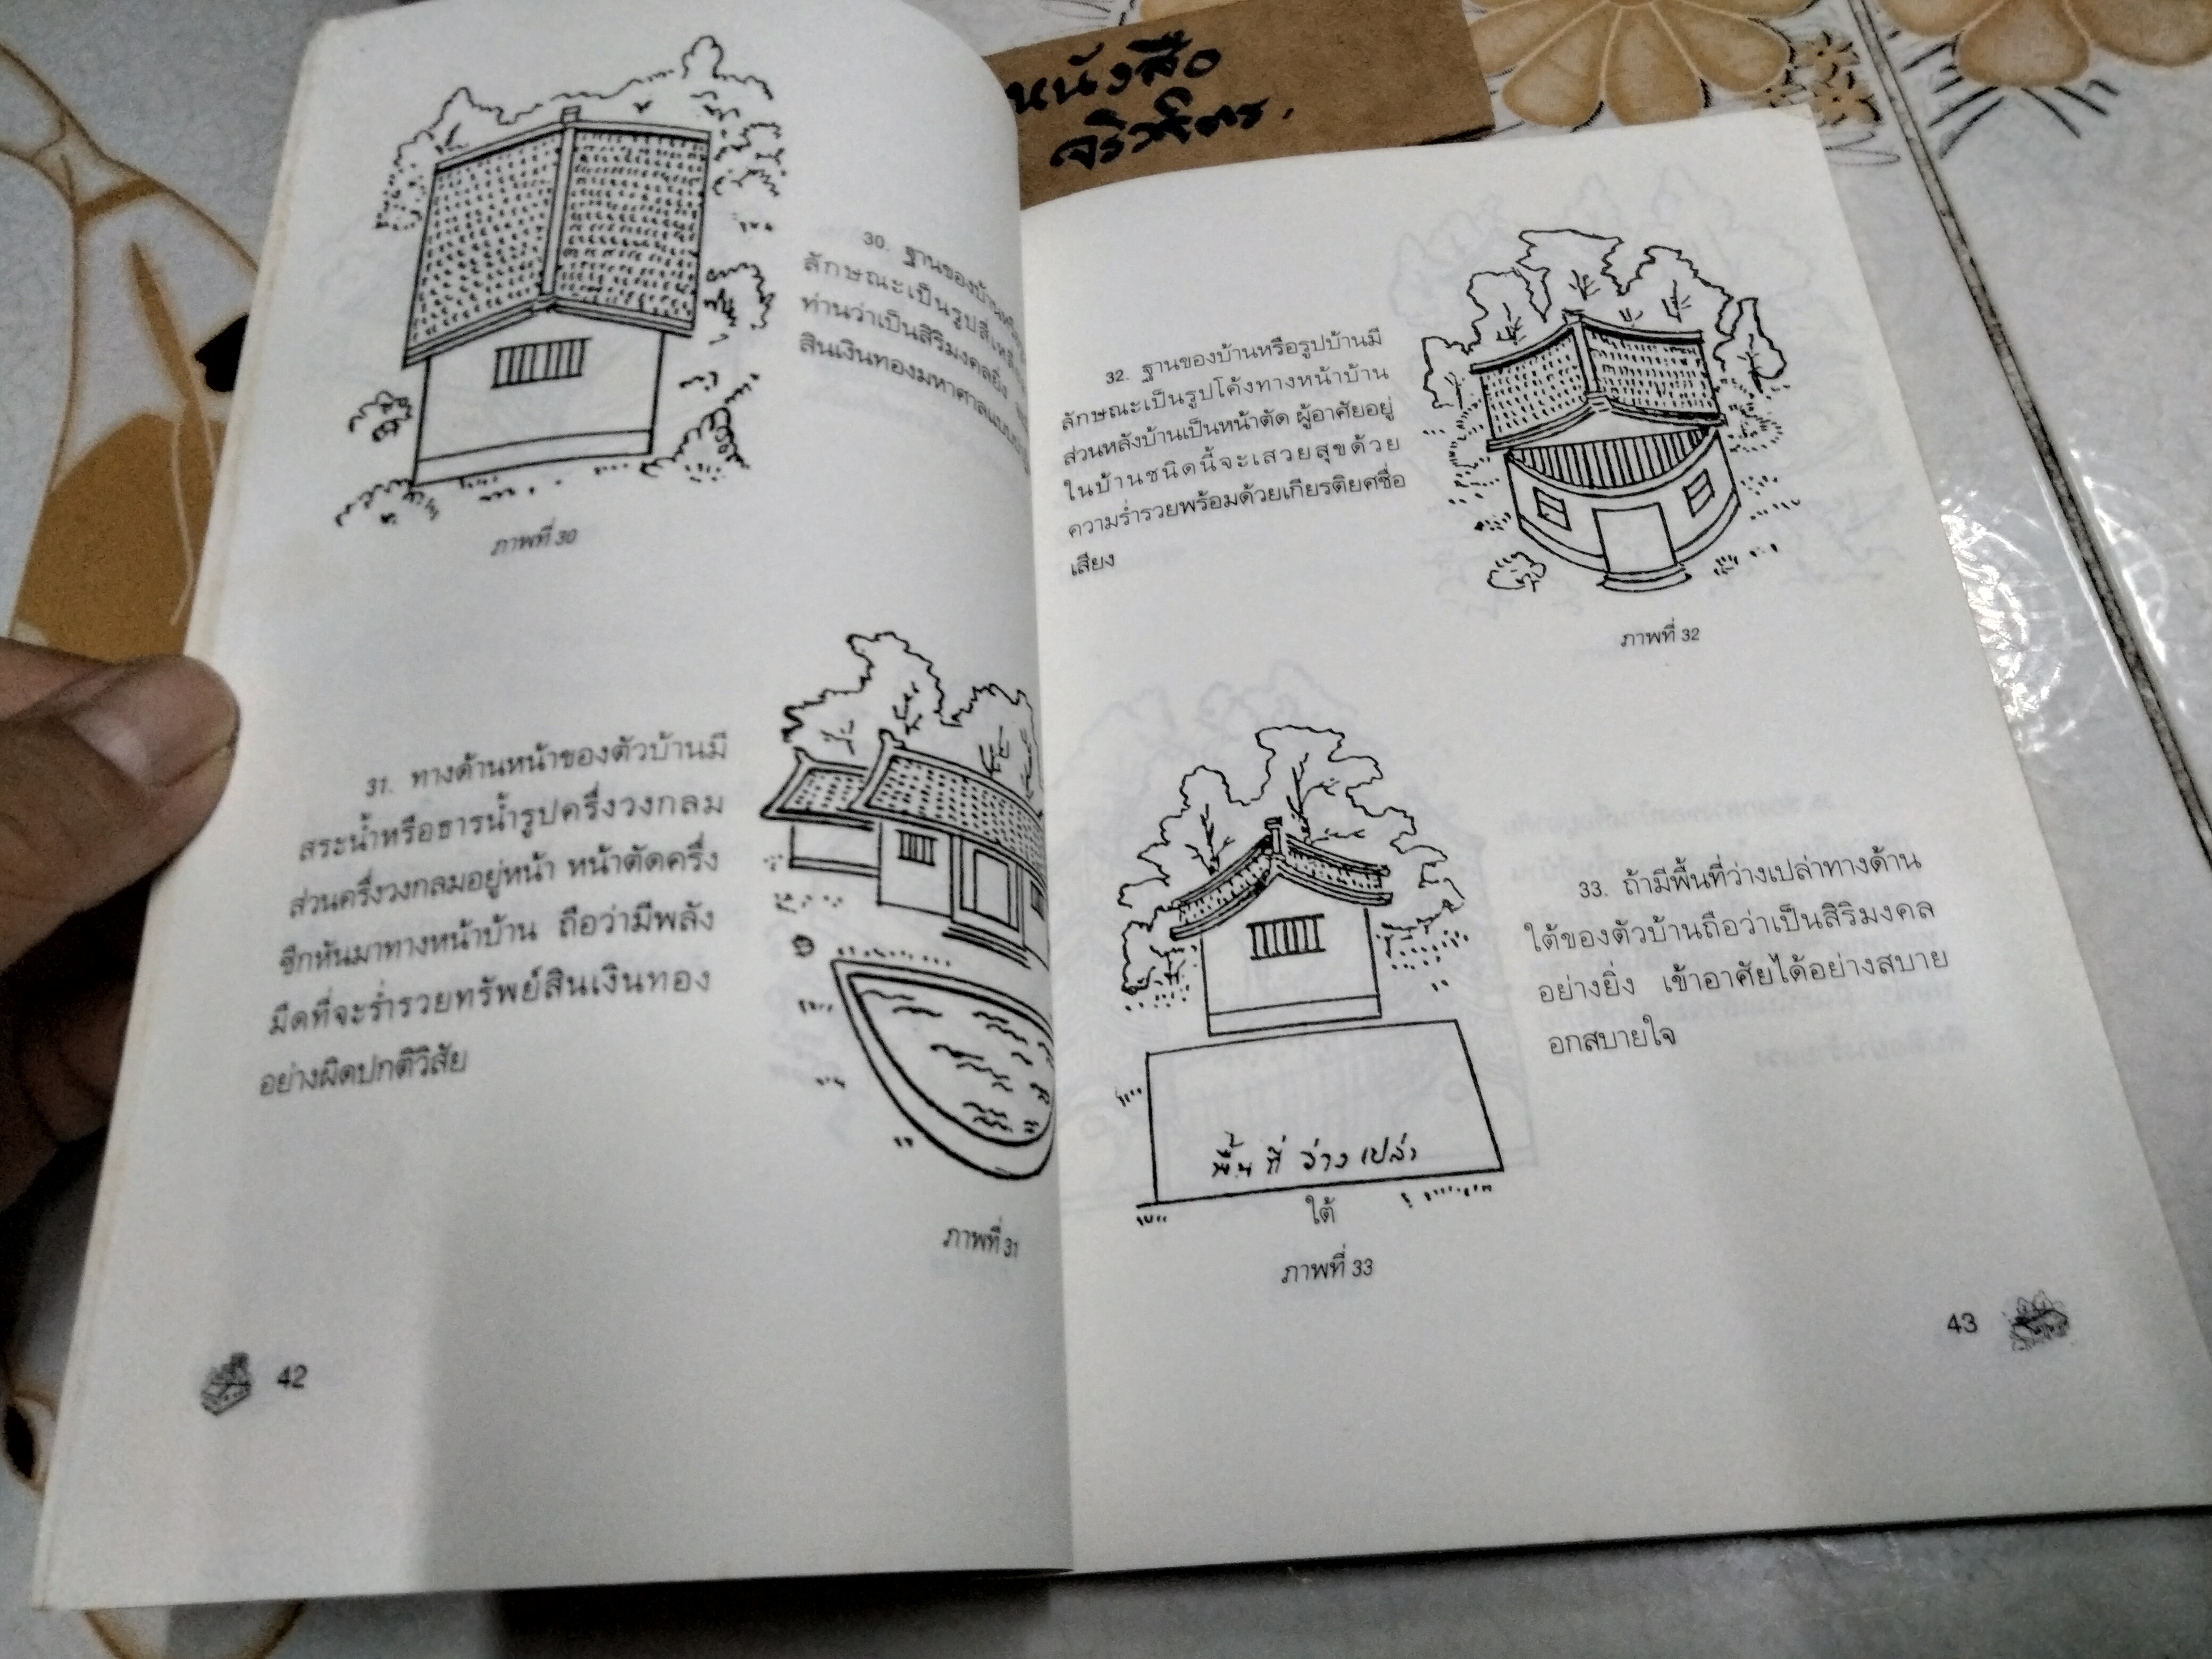 หนังสือ
30. ฐานของบ้าน
ลักษณะเป็นรูปสี่เหลี่ยม
ท่านว่าเป็นสิริมงคลยิ่ง
สินเงินทองมหาศาล
ภาพที่ 30
31. ทางด้านหน้าของตัวบ้านมี
สระน้ำหรือธารน้ำรูปครึ่งวงกลม
ส่วนครึ่งวงกลมอยู่หน้า หน้าตัดครึ่ง
ซีกหันมาทางหน้าบ้าน ถือว่ามีพลัง
มืดที่จะร่ำรวยทรัพย์สินเงินทอง
อย่างผิดปกติวิสัย
ภาพที่ 31
42
32. ฐานของบ้านหรือรูปบ้านมี
ลักษณะเป็นรูปโค้งทางหน้าบ้าน
ส่วนหลังบ้านเป็นหน้าตัด ผู้อาศัยอยู่
ในบ้านชนิดนี้จะเสวยสุขด้วย
ความร่ำรวยพร้อมด้วยเกียรติยศชื่อ
เสียง
ภาพที่ 32
33. ถ้ามีพื้นที่ว่างเปล่าทางด้าน
ใต้ของตัวบ้านถือว่าเป็นสิริมงคล
อย่างยิ่ง เข้าอาศัยได้อย่างสบาย
อกสบายใจ
พื้นที่ว่างเปล่า
ใต้
ภาพที่ 33
43